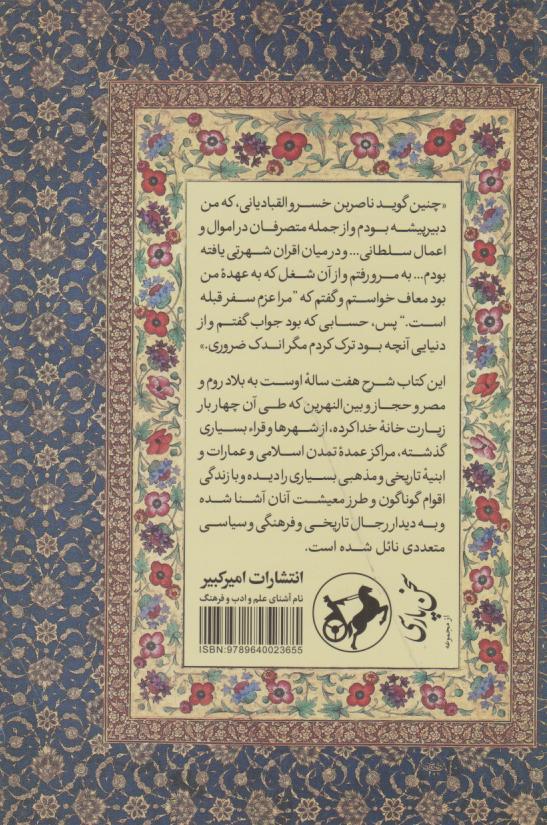 «چنین گوید ناصربن خسرو القبادیانی، که من
دبیرپیشه بودم و از جمله متصرفان در اموال و
اعمال سلطانی... و در میان اقران شهرتی یافته
بودم... به مرو رفتم و از آن شغل که به عهدهٔ من
بود معاف خواستم و گفتم که "مرا عزم سفر قبله
است." پس، حسابی که بود جواب گفتم و از
دنیایی آنچه بود ترک کردم مگر اندک ضروری.»
این کتاب شرح هفت سالهٔ اوست به بلاد روم و
مصر و حجاز و بین‌النهرین که طی آن چهار بار
زیارت خانهٔ خدا کرده، از شهرها و قراء بسیاری
گذشته، مراکز عمدهٔ تمدن اسلامی و عمارات و
ابنیهٔ تاریخی و مذهبی بسیاری را دیده و با زندگی
اقوام گوناگون و طرز معیشت آنان آشنا شده
و به دیدار رجال تاریخی و فرهنگی و سیاسی
متعددی نائل شده است.
از مجموعه
سخن پارسی
انتشارات امیرکبیر
نام آشنای علم و ادب و فرهنگ
ISBN: 9789640023655